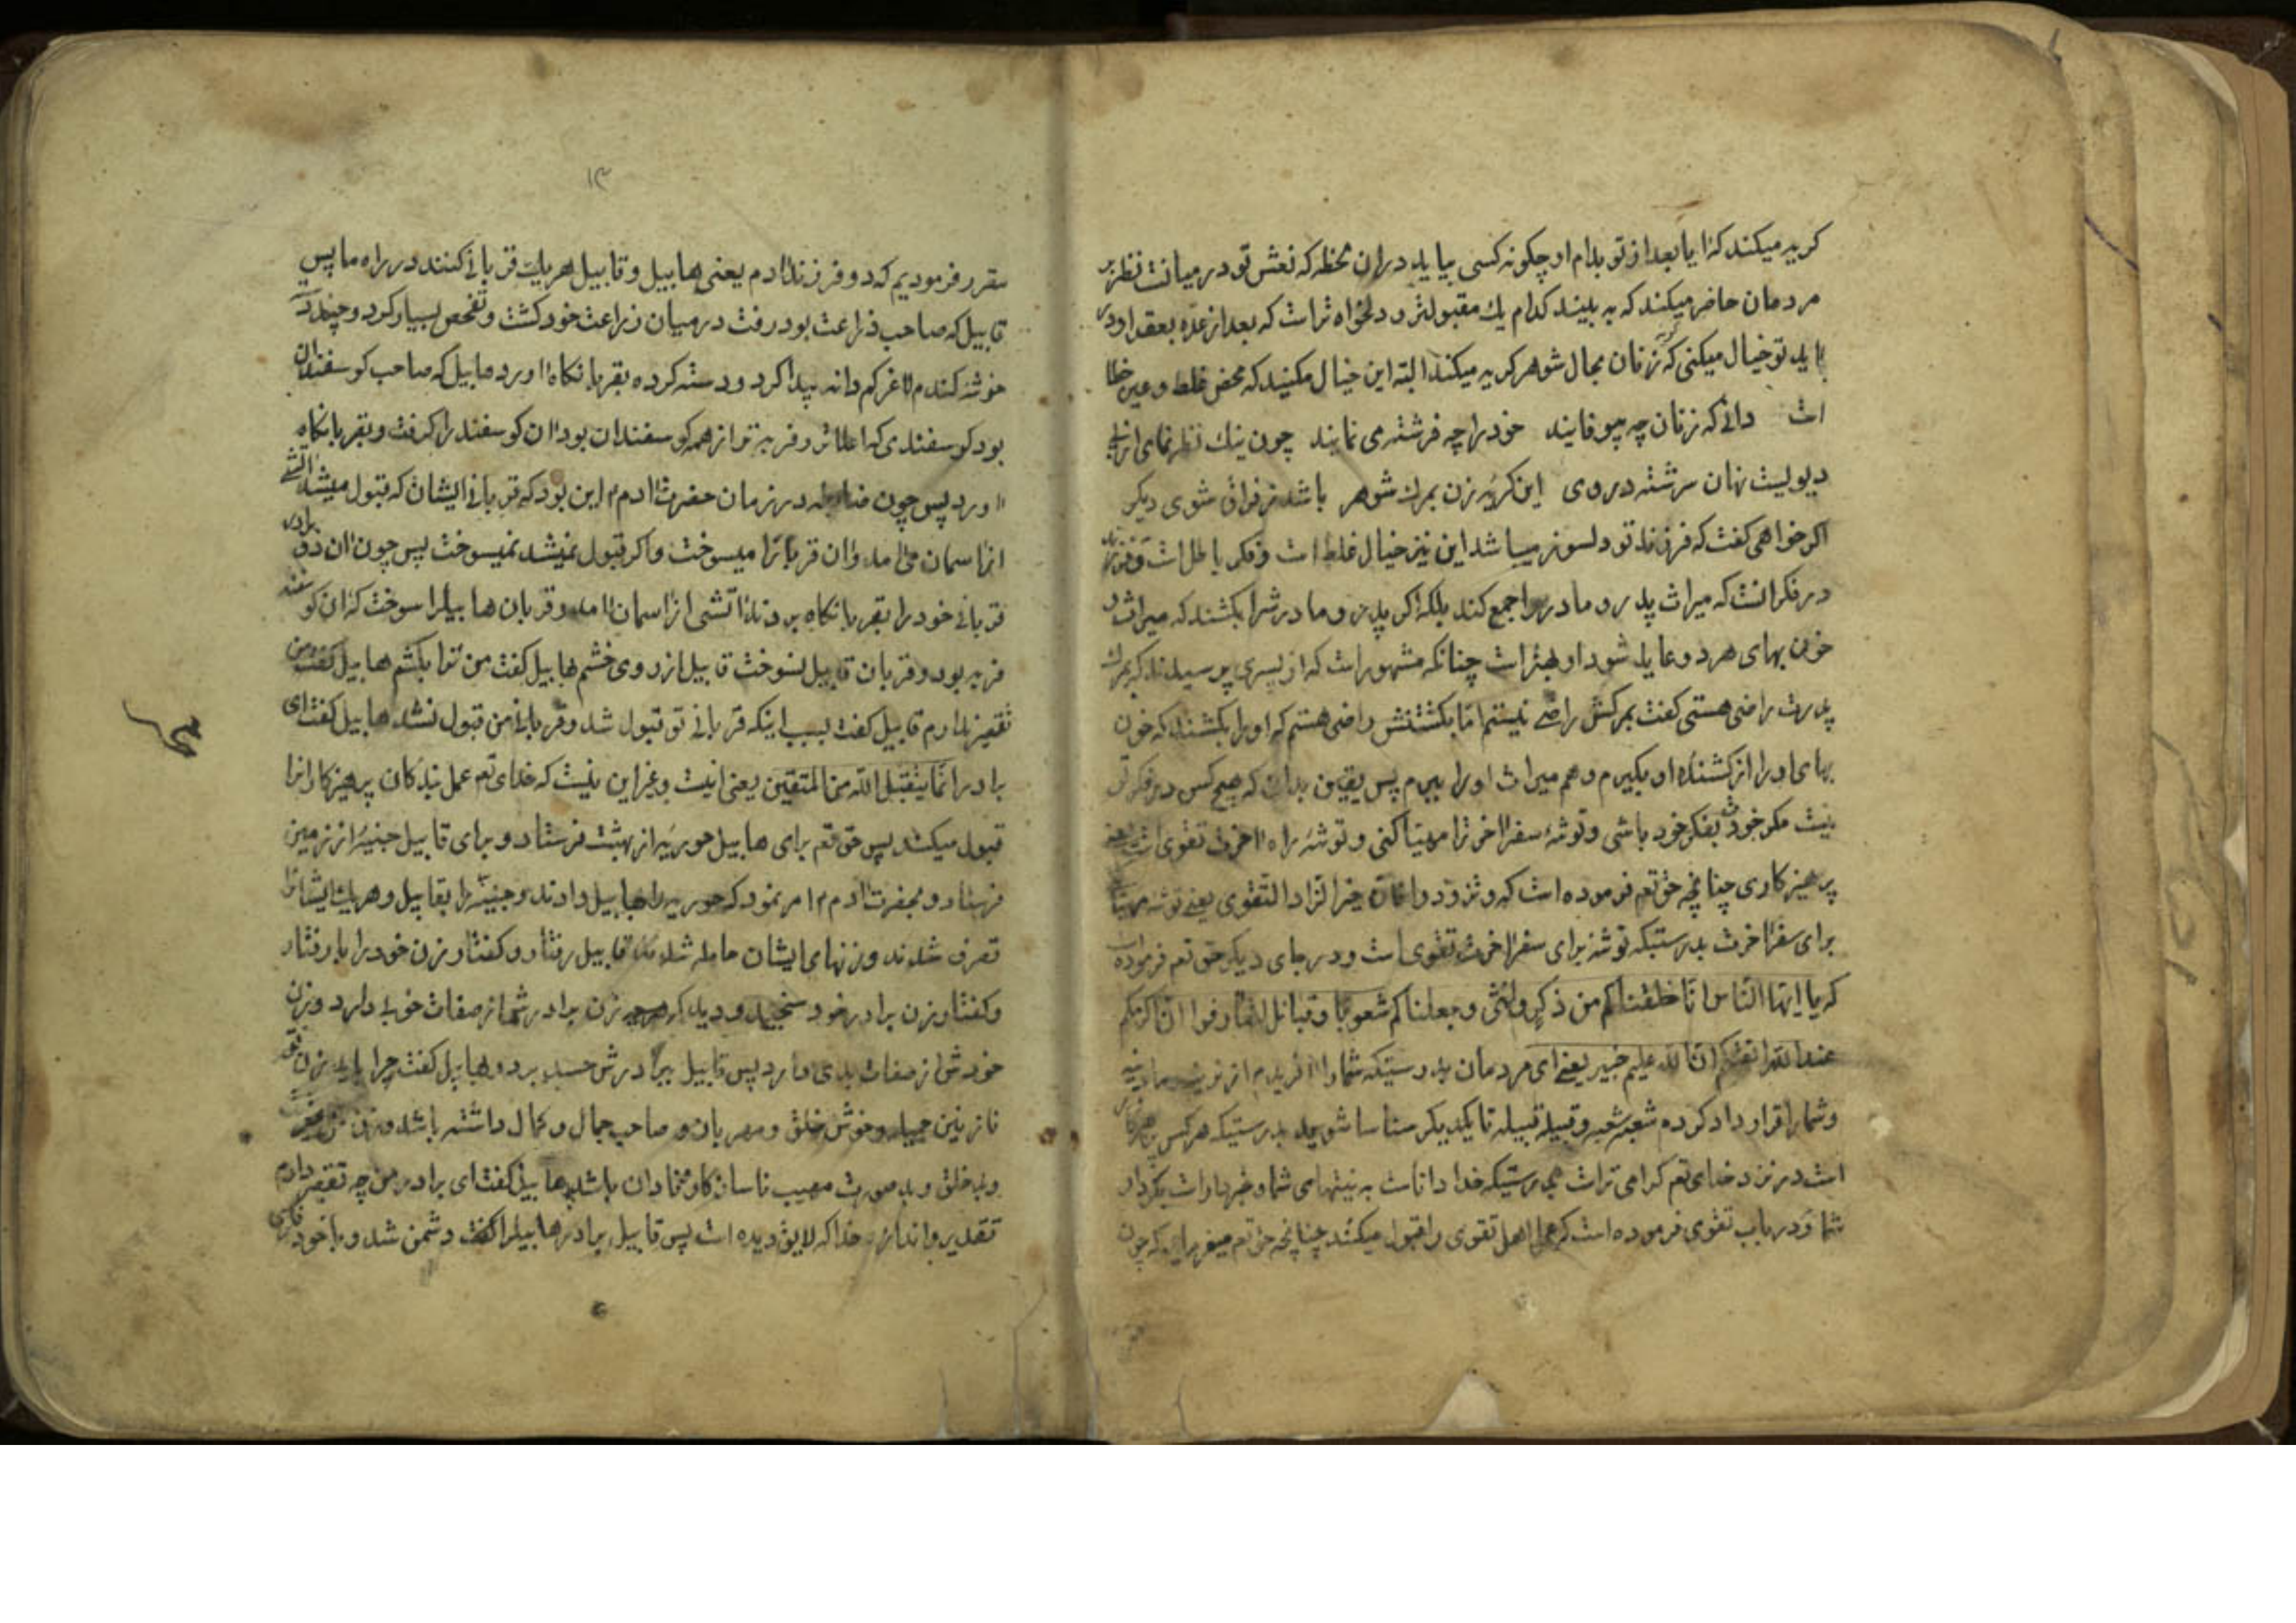 کریه میکند که ایا بعد از تو بدام او چکونه کسی بیاید در ان لحظه که نعش تو در میانست نظر بر
مردمان حاضر میکند که به بیند کدام یك مقبولتر و دلخواه تر است که بعد از عدّه بعقد او در
اید تو خیال میکنی که زنان بحال شوهر کریه میکنند البته این خیال مکنید که محض غلط و عین خطا
است دانی که زنان چه بیوفایند خود را چه فرشته می نمایند چون نیك نظر نمای
دیویست نهان سرشته در وی این کریهٔ زن بمرك شوهر باشد ز فراق شوی دیکر
اکر خواهی کفت که فرزند تو دلسوز میباشد این نیز خیال غلط است و فکر باطل است و فرزند
در فکر انست که میراث پدر و مادر را جمع کند بلکه اکر پدرش و مادرش را بکشند که میراث و
خون بهای هر دو عاید شود او بهتر است چنانکه مشهور است که از پسری پرسیدند که بمرك
پدرت راضی هستی کفت بمرکش راضی نیستم امّا بکشتنش راضی هستم که او را بکشند که خون
بهای او را از کشنده او بکیرم و هم میراث او را ببرم پس یقین بدان که هیچ کس در فکر تو
نیست مکر خودت بفکر خود باشی و توشهٔ سفر اخر ترا مهیّا کنی و توشهٔ راه اخرت تقوی است یعنی
پرهیزکاری چنانچه حق تعم فرموده است که و تزوّدوا فان خیر الزّاد التّقوی یعنی توشه مهیّا
برای سفر اخرت بدرستیکه توشه برای سفر اخرت تقوی است و در جای دیکر حق تعم فرموده است
که یا ایّها النّاس انّا خلقناکم من ذکر و انثی و جعلناکم شعوبًا و قبائل لتعارفوا انّ اکرمکم
عند الله اتقیکم انّ الله علیم خبیر یعنی ای مردمان بدرستیکه شما را افریدم از نرینه و مادینه
و شما را قرار داد کرده شعبه شعبه و قبیله قبیله تا یکدیکر شناسا شوید بدرستیکه هر کس پرهیزکار
است در نزد خدای تعم کرامی تر است بدرستیکه خدا داناست به نیتهای شما و خبردار است بکردار
شما و در باب تقوی فرموده است که عمل اهل تقوی را قبول میکند چنانچه حق تعم میفرماید که چون
۱۳
مقرر فرمودیم که دو فرزند ادم یعنی هابیل و قابیل هر یك قربانی کنند در راه ما پس
قابیل که صاحب زراعت بود رفت در میان زراعت خود کشت و تفحص بسیار کرد و چند
خوشه کندم لاغر کم دانه پیدا کرد و دسته کرده بقربانکاه اورد هابیل که صاحب کوسفندان
بود کوسفندی که اعلاتر و فربه تر از همه کوسفندان بود ان کوسفند را کرفت و بقربانکاه
اورد پس چون ضابطه در زمان حضرت ادم این بود که قربانی ایشان که قبول میشد اتشی
از اسمان می امد و ان قربانرا میسوخت و اکر قبول نمیشد نمیسوخت پس چون ان دو برادر
قربانی خود را بقربانکاه بردند اتشی از اسمان امد و قربان هابیلرا سوخت که ان کوسفند
فربه بود و قربان قابیل نسوخت قابیل از روی خشم هابیل کفت من ترا بکشم هابیل کفت من
تقصیر ندارم قابیل کفت بسبب اینکه قربانی تو قبول شد و قربانی من قبول نشد هابیل کفت ای
برادر انّما یتقبّل الله من المتّقین یعنی اینست و غیر این نیست که خدای تعم عمل بندکان پرهیزکارانرا
قبول میکند پس حق تعم برای هابیل حوریّه از بهشت فرستاد و برای قابیل جنیّهٔ از زمین
فرستاد و بحضرت ادم امر نمود که حوریه را بهابیل دادند و جنیّه را بقابیل و هر یك ایشان
تصرف شدند و زنهای ایشان حامله شدند قابیل رفتار و کفتار زن خود را با رفتار
و کفتار زن برادر خود سنجید و دید که هرچه زن برادرش از صفات خوبی دارد و زن
خودش از صفات بدی دارد پس قابیل ببرادرش حسد برد و هابیل کفت چرا باید زن تو
نازنین جمیله و خوش خلق و مهربان و صاحب جمال و کمال داشته باشد و زن من
و بد خلق و بد صورت مهیب ناسازکار و نادان باشد هابیل کفت ای برادر من چه تقصیر دارم
تقدیر و اندازه خدا که لایق دیده است پس قابیل برادر هابیلرا کفت دشمن شد و با خود فکری